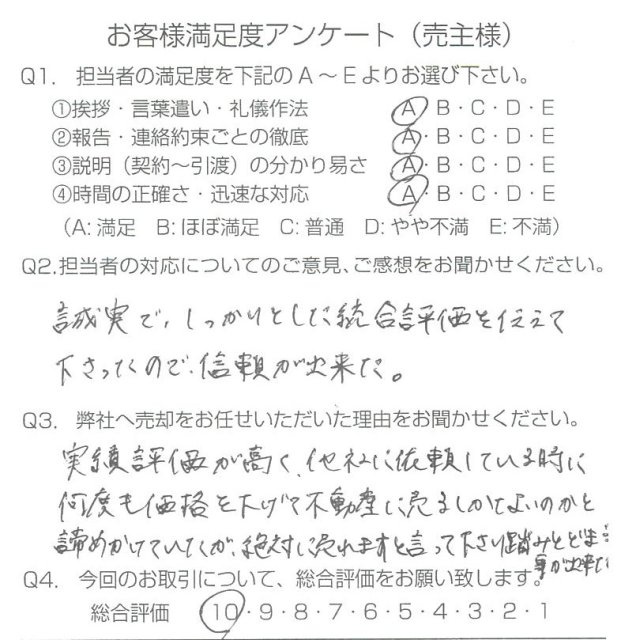 お客様満足度アンケート（売主様）
Q1. 担当者の満足度を下記のA～Eよりお選び下さい。
①挨拶・言葉遣い・礼儀作法 A・B・C・D・E
②報告・連絡約束ごとの徹底 A・B・C・D・E
③説明（契約～引渡）の分かり易さ A・B・C・D・E
④時間の正確さ・迅速な対応 A・B・C・D・E
（A: 満足 B: ほぼ満足 C: 普通 D: やや不満 E: 不満）
Q2.担当者の対応についてのご意見、ご感想をお聞かせください。
誠実で、しっかりとした統合評価を伝えて
下さったので、信頼が出来た。
Q3. 弊社へ売却をお任せいただいた理由をお聞かせください。
実績評価が高く、他社に依頼している時に
何度も価格を下げて不動産に売るしかないのかと
諦めかけていたが、絶対に売れますと言って下さり踏みとどまる
事が出来た
Q4. 今回のお取引について、総合評価をお願い致します。
総合評価 10・9・8・7・6・5・4・3・2・1